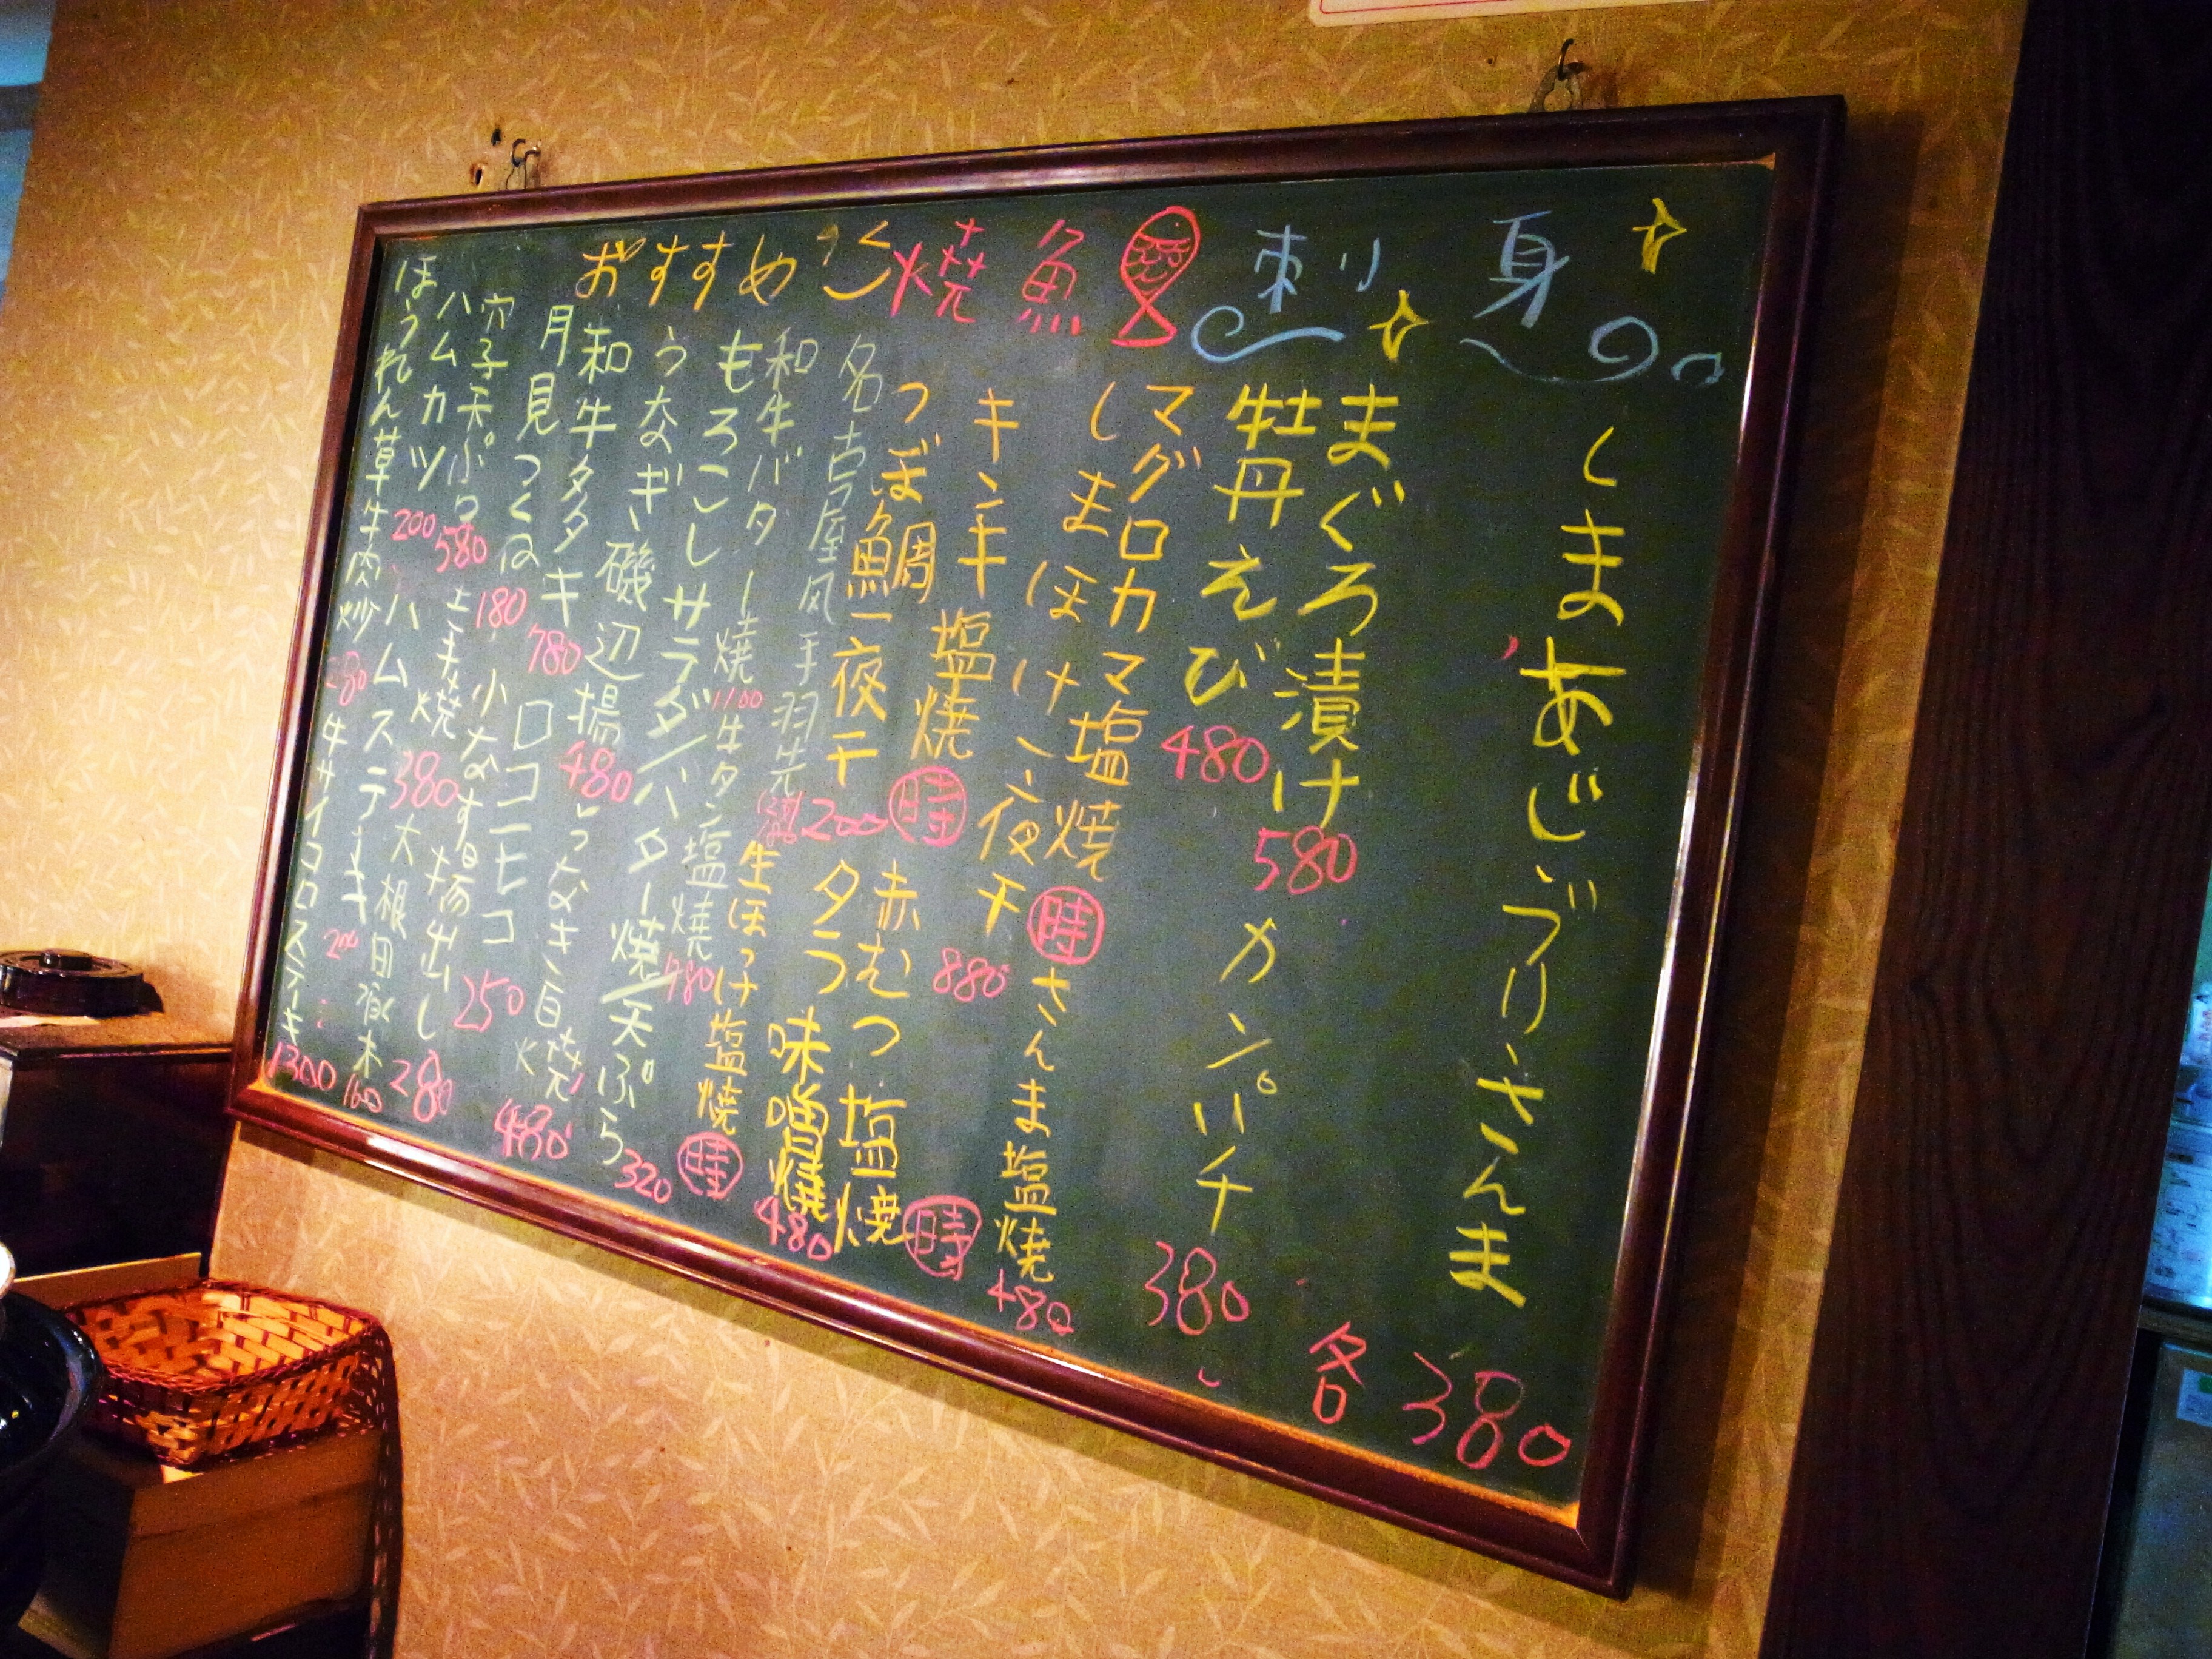 刺身
しまあじ、ぶり、さんま
各380
まぐろ漬け 580
カンパチ 380
牡丹えび 480
焼魚
マグロカマ塩焼 時
さんま塩焼 480
しまほけ一夜干 880
キンキ塩焼 時
赤むつ塩焼 時
つぼ鯛一夜干 1200
タラ味噌焼 480
おすすめ
名古屋风手羽先
生ほっけ塩焼 時
和牛バター焼 1100
牛タン塩焼 780
もろこしサラダ/バター焼/天ぷら 320
うなぎ磯辺揚 480
うなぎ白焼 480
和牛タタキ 780
ロコモコ 250
月見つくね 180
小なす揚出し 280
穴子天ぷら 580
玉子焼 380
大根田楽 160
ハムカツ 200
ハムステーキ
ほうれん草牛肉炒
牛サイコロステーキ 1300